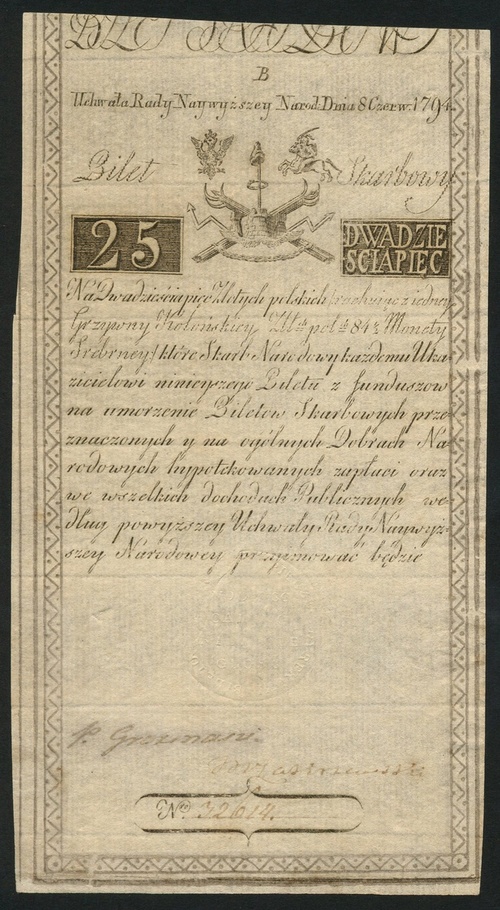 B
Uchwała Rady Naywyższey Narod: Dnia 8 Czerw: 1794.
Bilet Skarbowy
25 DWADZIE
SCIAPIEC
Na Dwadzieściapięc Złotych polskich /rachuiąc z iedney
Grzywny Kolońskiey Złł: pol: 84½ Monety
Srebrney/ które Skarb Narodowy każdemu Uka-
zicielowi ninieyszego Biletu z funduszow
na umorzenie Biletow Skarbowych prze-
znaczonych y na ogólnych Dobrach Na-
rodowych hypotekowanych zapłaci oraz
we wszelkich dochodach Publicznych we-
dług powyższey Uchwały Rady Naywyż-
szey Narodowey przyimować będzie
Nro 32614.